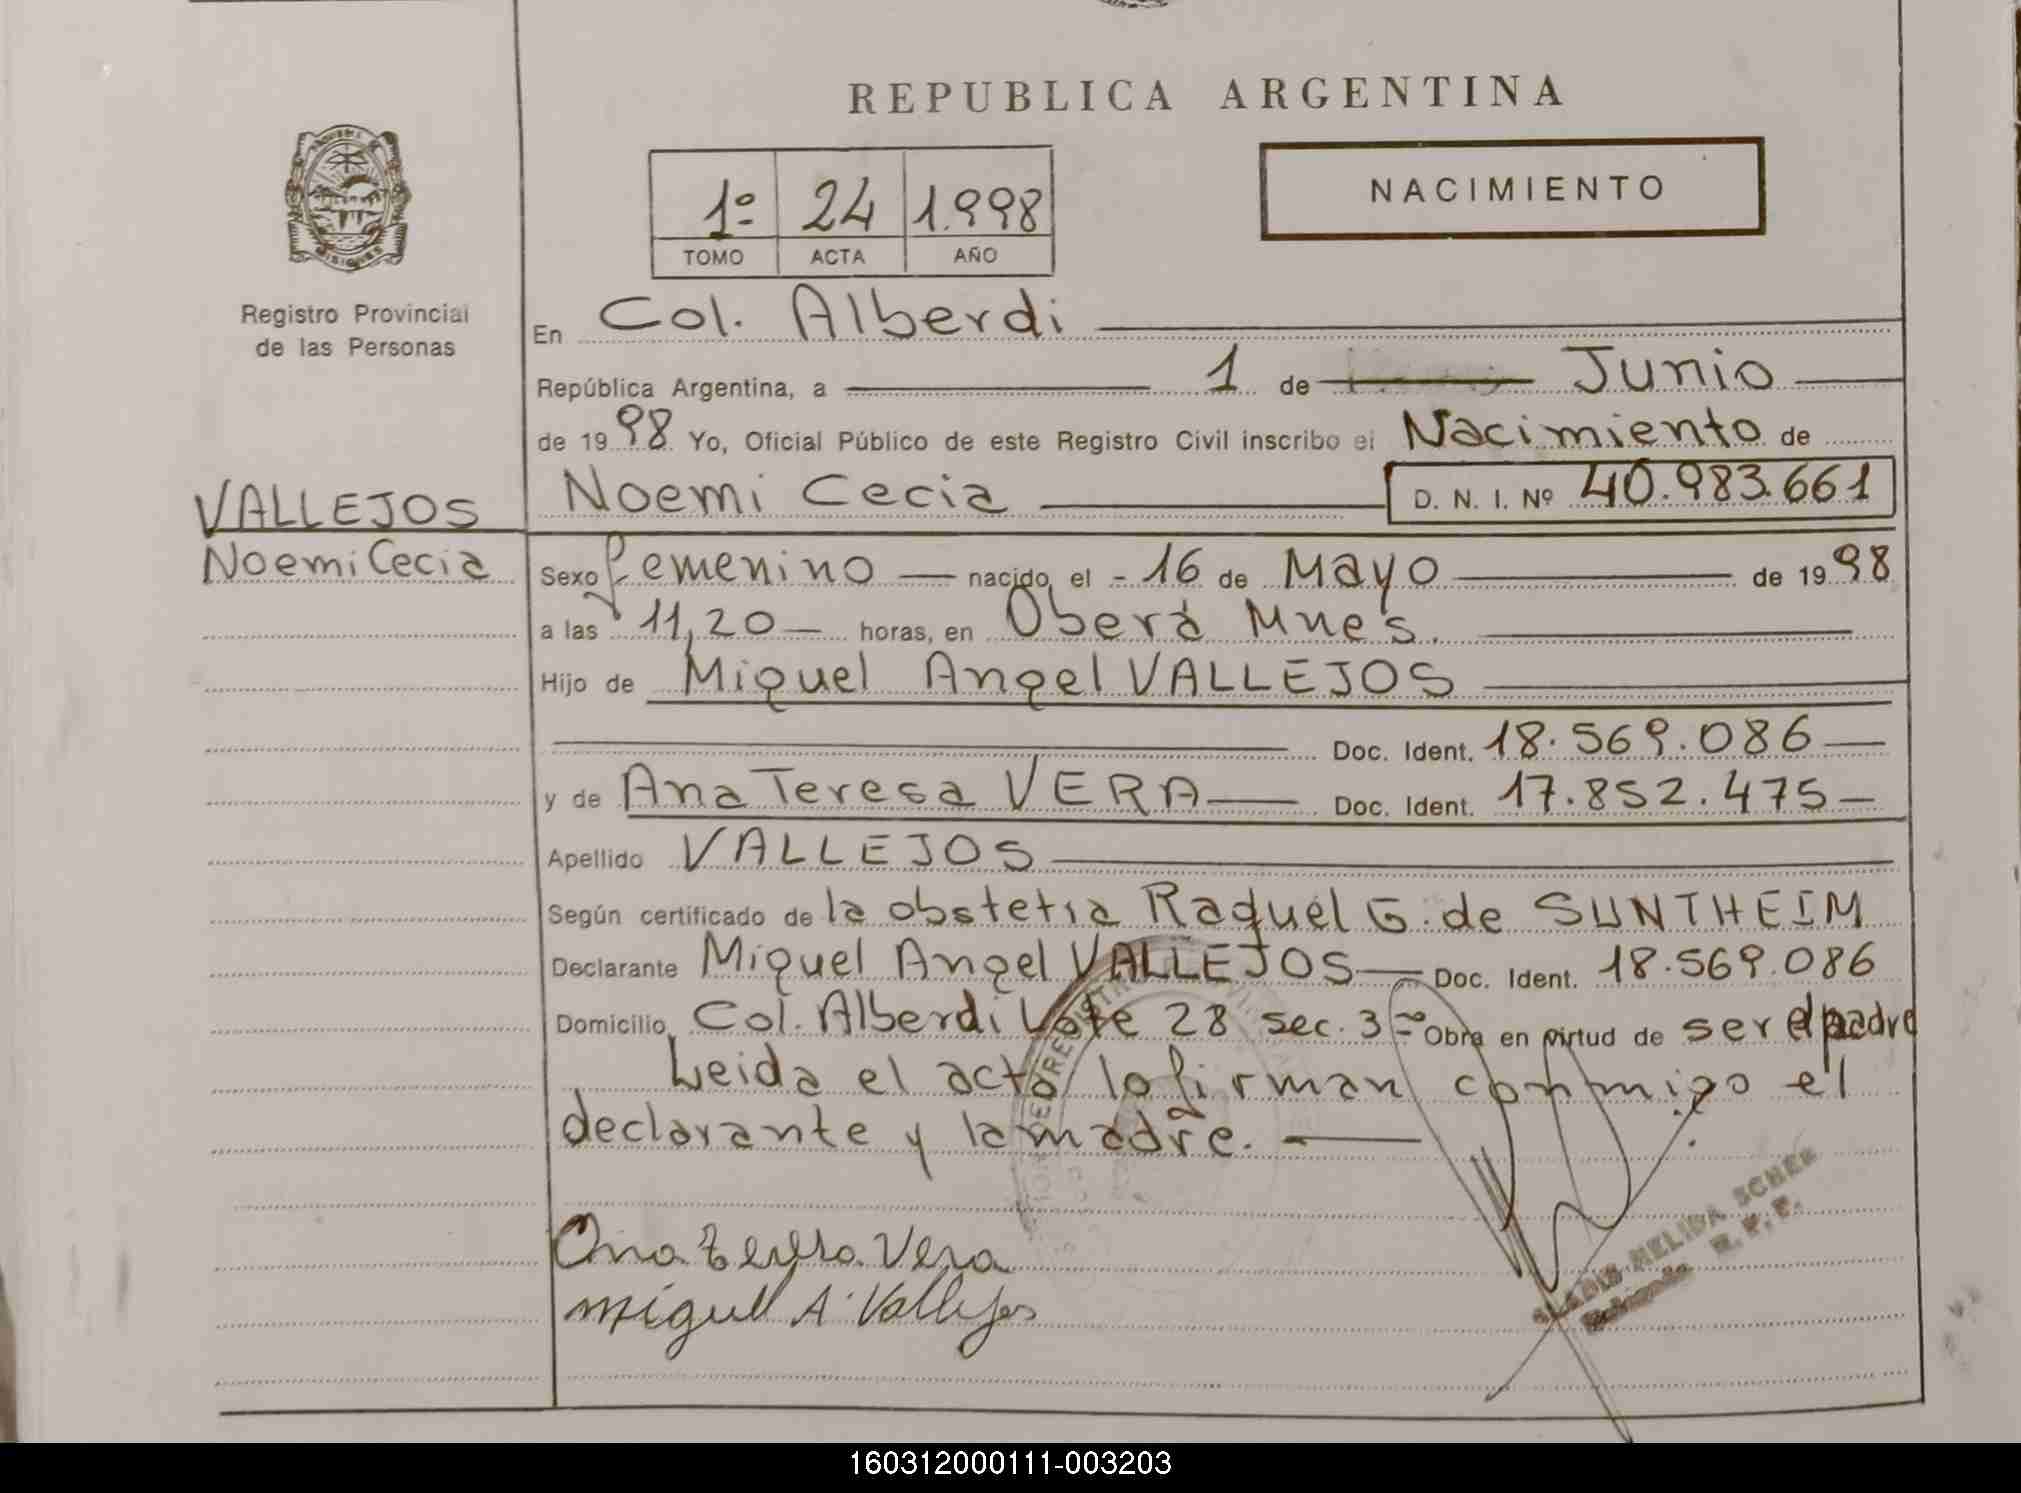 REPUBLICA ARGENTINA
NACIMIENTO
1º 24 1.998
TOMO ACTA AÑO
MISIONES
Registro Provincial
de las Personas
En Col. Alberdi
República Argentina, a 1 de Junio
de 1998 Yo, Oficial Público de este Registro Civil inscribo el Nacimiento de
VALLEJOS
Noemi Cecia
Noemi Cecia D. N. I. Nº 40.983.661
Sexo femenino nacido el - 16 de Mayo de 1998
a las 11,20 horas, en Oberá Mnes.
Hijo de Miguel Angel VALLEJOS
Doc. Ident. 18.569.086
y de Ana Teresa VERA Doc. Ident. 17.852.475
Apellido VALLEJOS
Según certificado de la obstetra Raquel G. de SUNTHEIM
Declarante Miguel Angel VALLEJOS Doc. Ident. 18.569.086
Domicilio Col. Alberdi Lote 28 sec. 3ra Obra en virtud de ser el padre
Leida el acta lo firman conmigo el
declarante y la madre.
Ana Teresa Vera
Miguel A. Vallejos
NELIDA
160312000111-003203